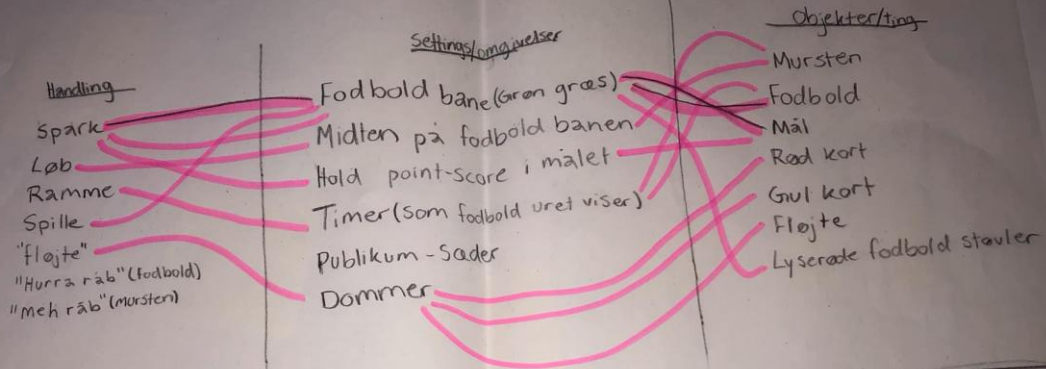 Handling
Spark
Løb
Ramme
Spille
"fløjte"
"Hurra råb" (fodbold)
"meh råb" (mursten)
Settings/omgivelser
Fodbold bane (Grøn græs)
Midten på fodbold banen
Hold point-score i målet
Timer (som fodbold uret viser)
Publikum - Sæder
Dommer
Objekter/ting
Mursten
Fodbold
Mål
Rød kort
Gul kort
Fløjte
Lyserøde fodbold støvler